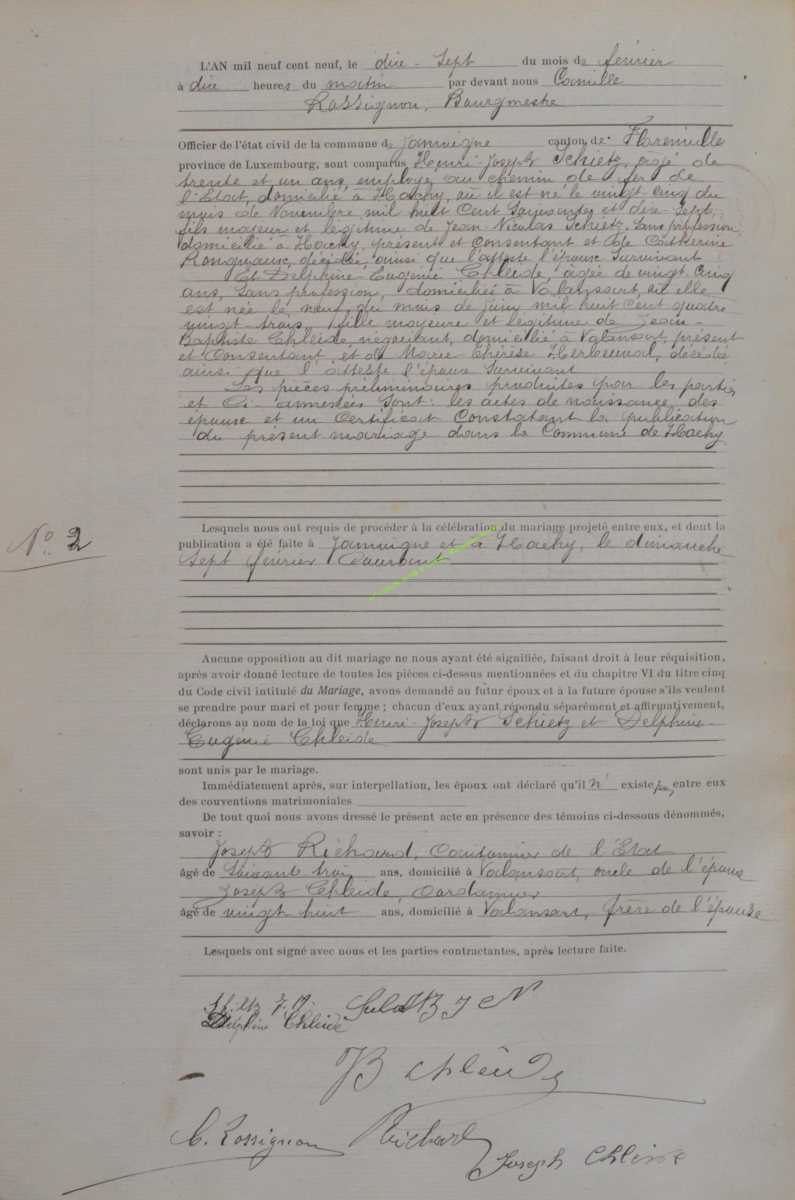 L'AN mil neuf cent neuf, le dix-sept du mois de février
à dix heures du matin par devant nous Camille
Rossignon, Bourgmestre
Officier de l'état civil de la commune de Jamoigne canton de Florenville
province de Luxembourg, sont comparus Henri-Joseph Schietz, agé de
trente et un ans, employé au chemin de fer de
l'Etat, domicilié à Hachy, où il est né le vingt cinq du
mois de Novembre mil huit Cent Soixante et dix-Sept,
fils majeur et légitime de Jean-Nicolas Schietz, Sans profession,
domicilié à Hachy, présent et Consentant et de Catherine
décédée, ainsi que l'atteste l'épouse Survivant
Et Delphine-Eugénie Chleide, agée de vingt cinq
ans, Sans profession, domiciliée à Valansart, où elle
est née le neuf du mois de Juin mil huit Cent quatre
vingt trois, fille majeure et légitime de Jean-
Baptiste Chleide, négociant, domicilié à Valansart, présent
et Consentant, et de Marie Thérèse décédée
ainsi que l'atteste l'époux Survivant
Les pièces préliminaires produites par les parties
et Ci-annexées Sont: les actes de naissance des
épouse et un Certificat Constatant la publication
du présent mariage dans la Commune de Hachy
N° 2
Lesquels nous ont requis de procéder à la célébration du mariage projeté entre eux, et dont la
publication a été faite à Jamoigne et à Hachy, le dimanche
Sept février Courant
Aucune opposition au dit mariage ne nous ayant été signifiée, faisant droit à leur réquisition,
après avoir donné lecture de toutes les pièces ci-dessus mentionnées et du chapitre VI du titre cinq
du Code civil intitulé du Mariage, avons demandé au futur époux et à la future épouse s'ils veulent
se prendre pour mari et pour femme ; chacun d'eux ayant répondu séparément et affirmativement,
déclarons au nom de la loi que Henri-Joseph Schietz et Delphine-
Eugénie Chleide
sont unis par le mariage.
Immédiatement après, sur interpellation, les époux ont déclaré qu'il n' existe pas entre eux
des conventions matrimoniales
De tout quoi nous avons dressé le présent acte en présence des témoins ci-dessous dénommés,
savoir :
Joseph Richard, Cantonnier de l'Etat
âgé de Soixante trois ans, domicilié à Valansart, oncle de l'épouse
Joseph Chleide, Cordonnier
âgé de vingt huit ans, domicilié à Valansart, frère de l'épouse
Lesquels ont signé avec nous et les parties contractantes, après lecture faite.
J N
Delphine Chleide
JB Chleide
C. Rossignon Richard
Joseph Chleide